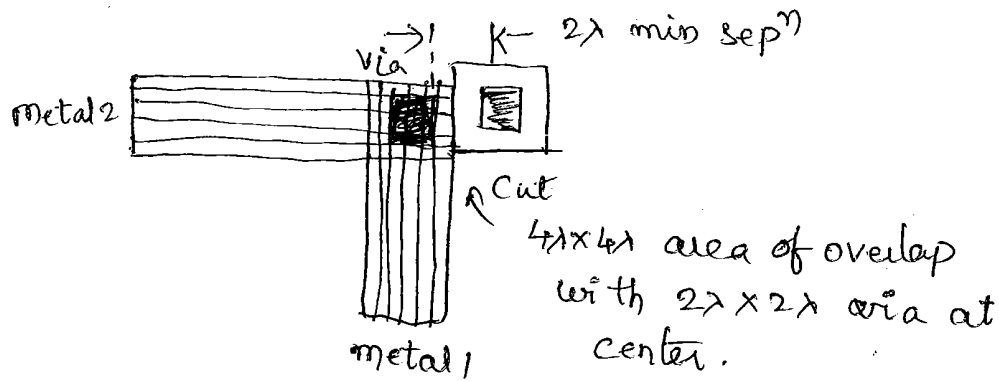 2λ min sepⁿ
via
Metal 2
Cut
4λ×4λ area of overlap
with 2λ×2λ via at
center.
Metal 1